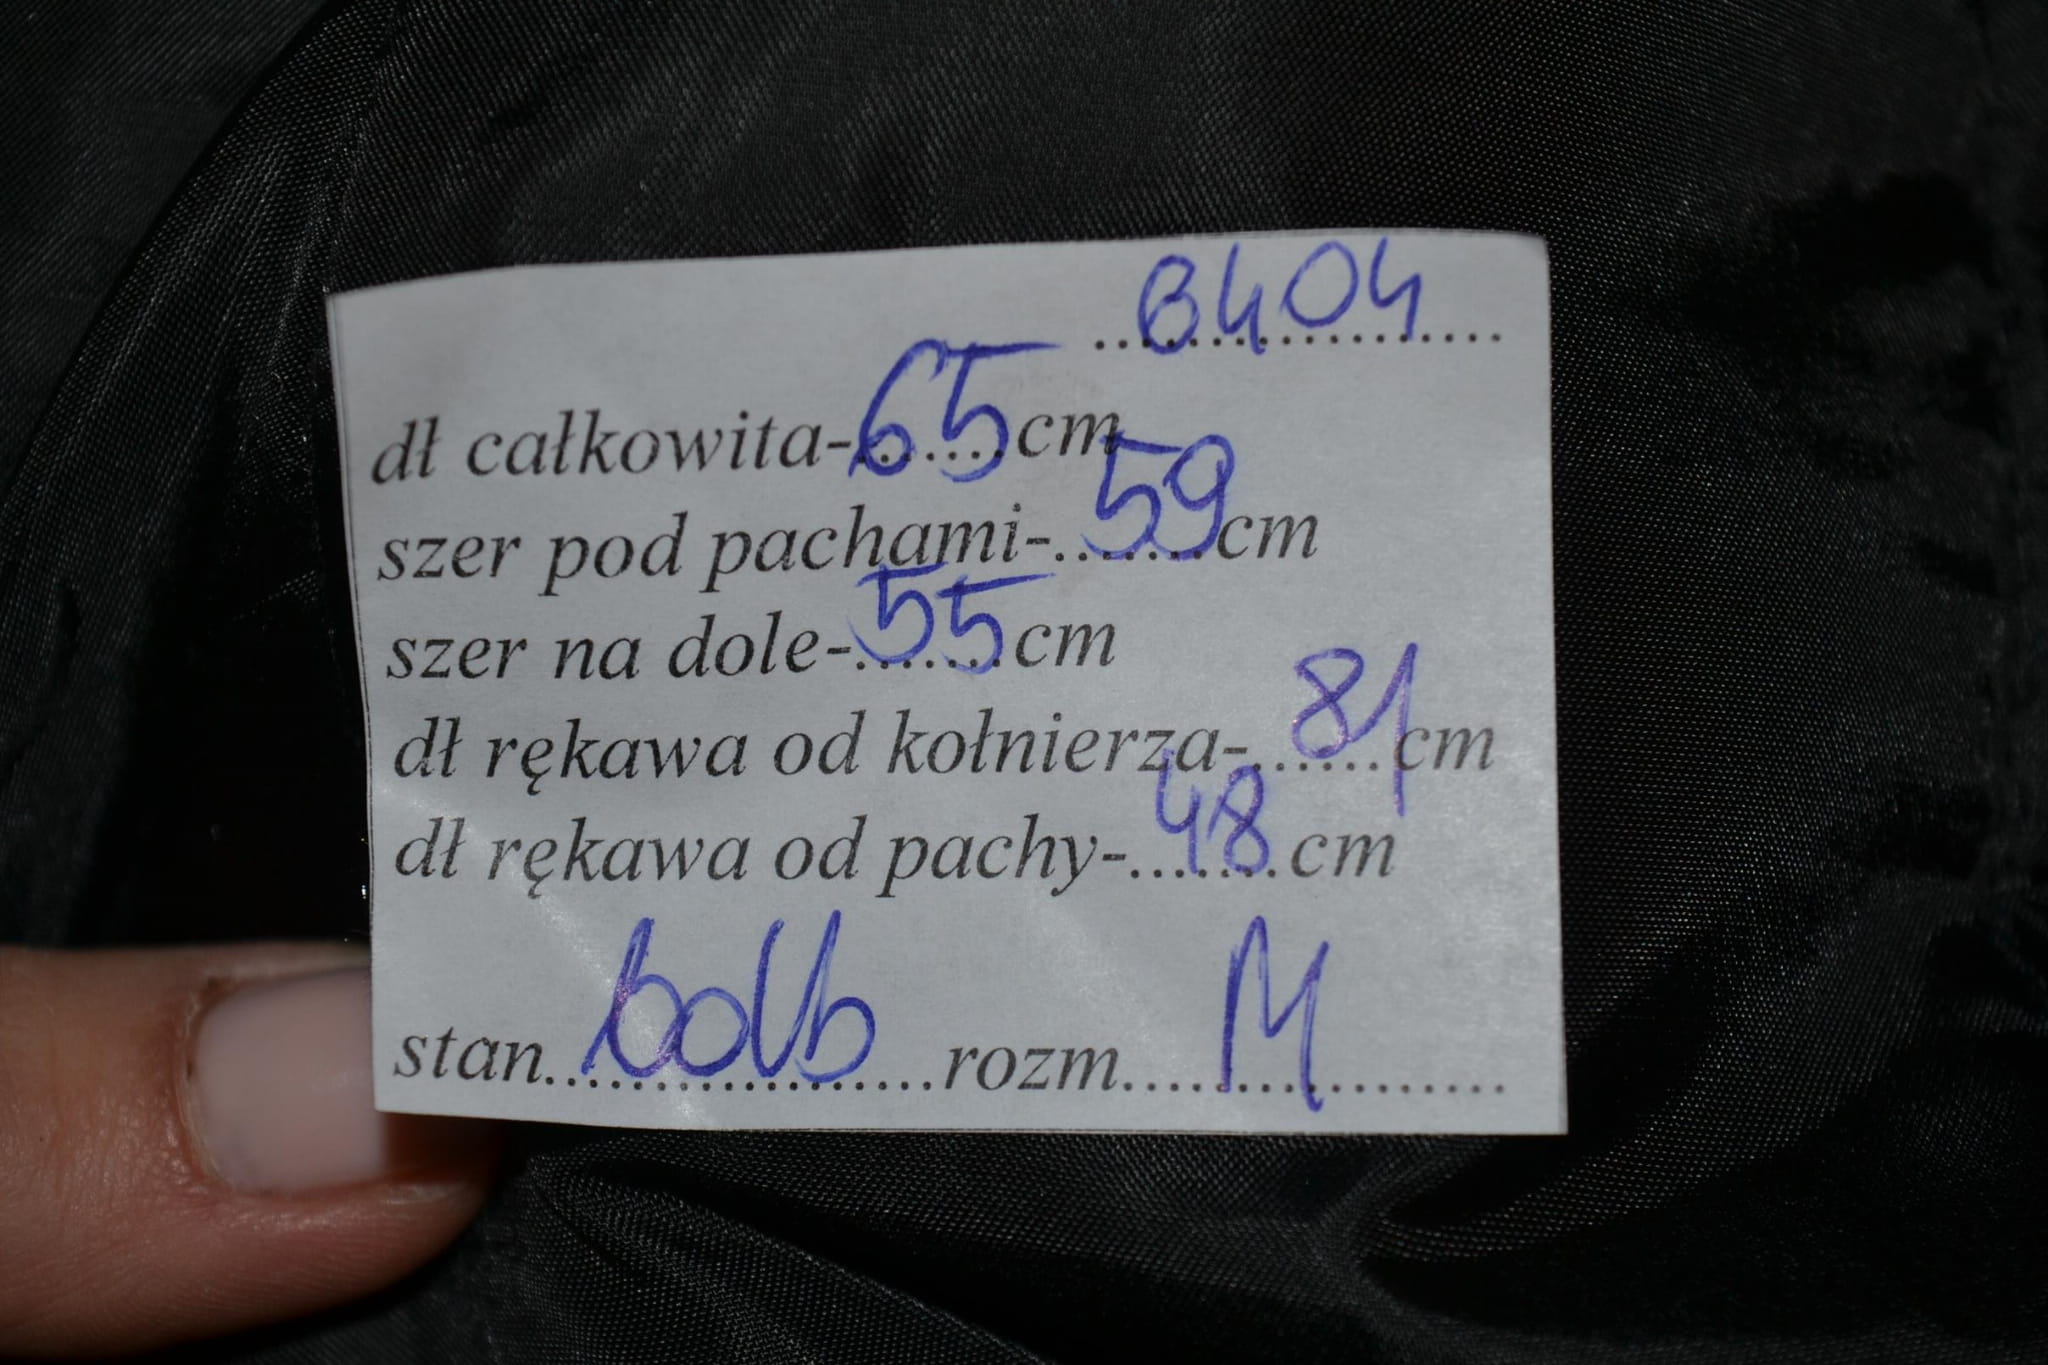 B404
dł całkowita-65cm
szer pod pachami-59cm
szer na dole-55cm
dł rękawa od kołnierza-81cm
dł rękawa od pachy-48cm
stan.................rozm M